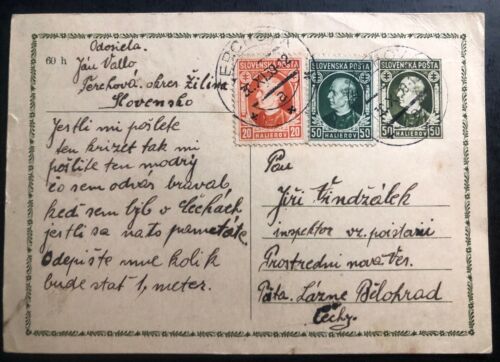 60 h
Odosiela.
Ján Vallo
Terchová. okres Žilina
Slovensko
Jestli mi pošlete
ten krizet tak mi
pošlite ten modrý
čo sem odvás braval,
keď sem býv v čechách
jestli sa na to pametáte
Odepište mne kolik
bude stat 1, meter.
SLOVENSKÁ POŠTA
20 HALIEROV 20
SLOVENSKÁ POŠTA
50 HALIEROV 50
SLOVENSKÁ POŠTA
50 HALIEROV 50
Pan
Jiří
inspektor vz. poistani
Prostredni nová Ves.
Pošta. Lázne Bělohrad
Čechy.